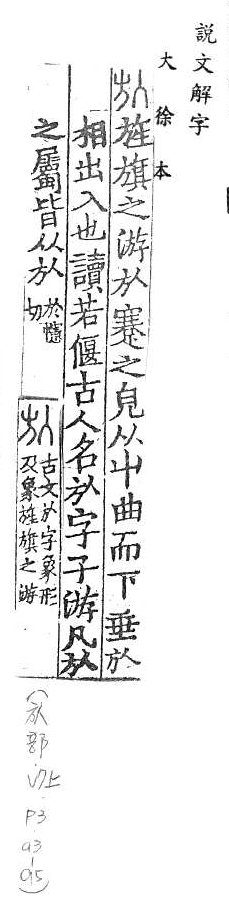 説文解字
大徐本
㫃旌旗之游㫃蹇之皃从屮曲而下垂㫃
相出入也讀若偃古人名㫃字子游凡㫃
之屬皆从㫃
於幰
切
㫃
古文㫃字象形
及象旌旗之游
(㫃部.七上.P3.93-95)